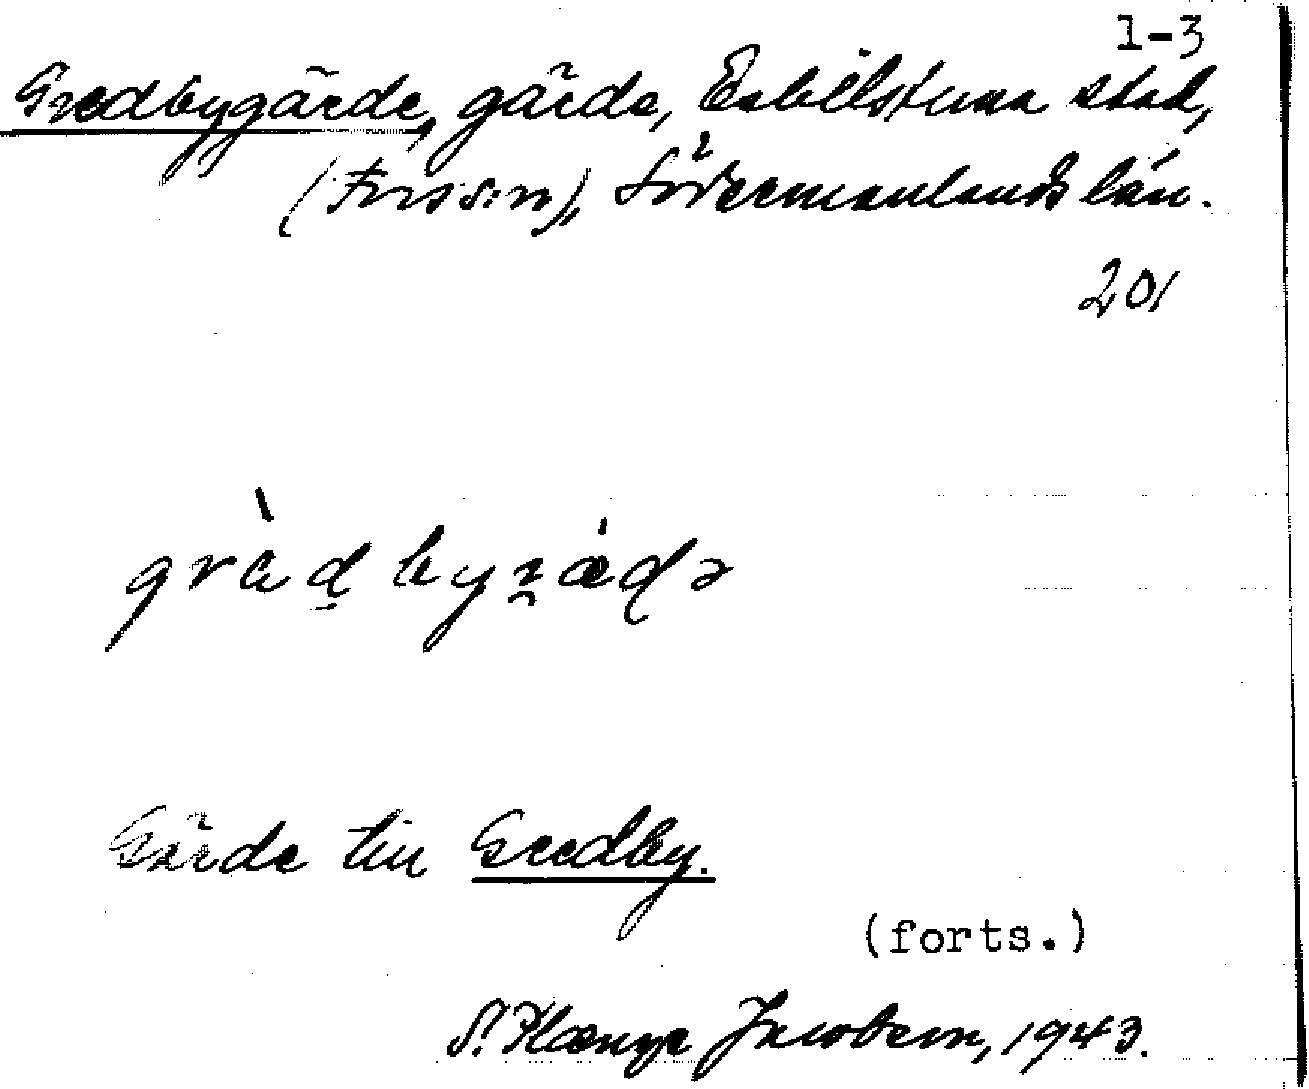 1-3
Gredbygärde, gärde, Eskilstuna stad,
(Fors sn), Södermanlands län.
201
Gärde till Gredby.
(forts.)
S. Plænge Jacobson, 1943.